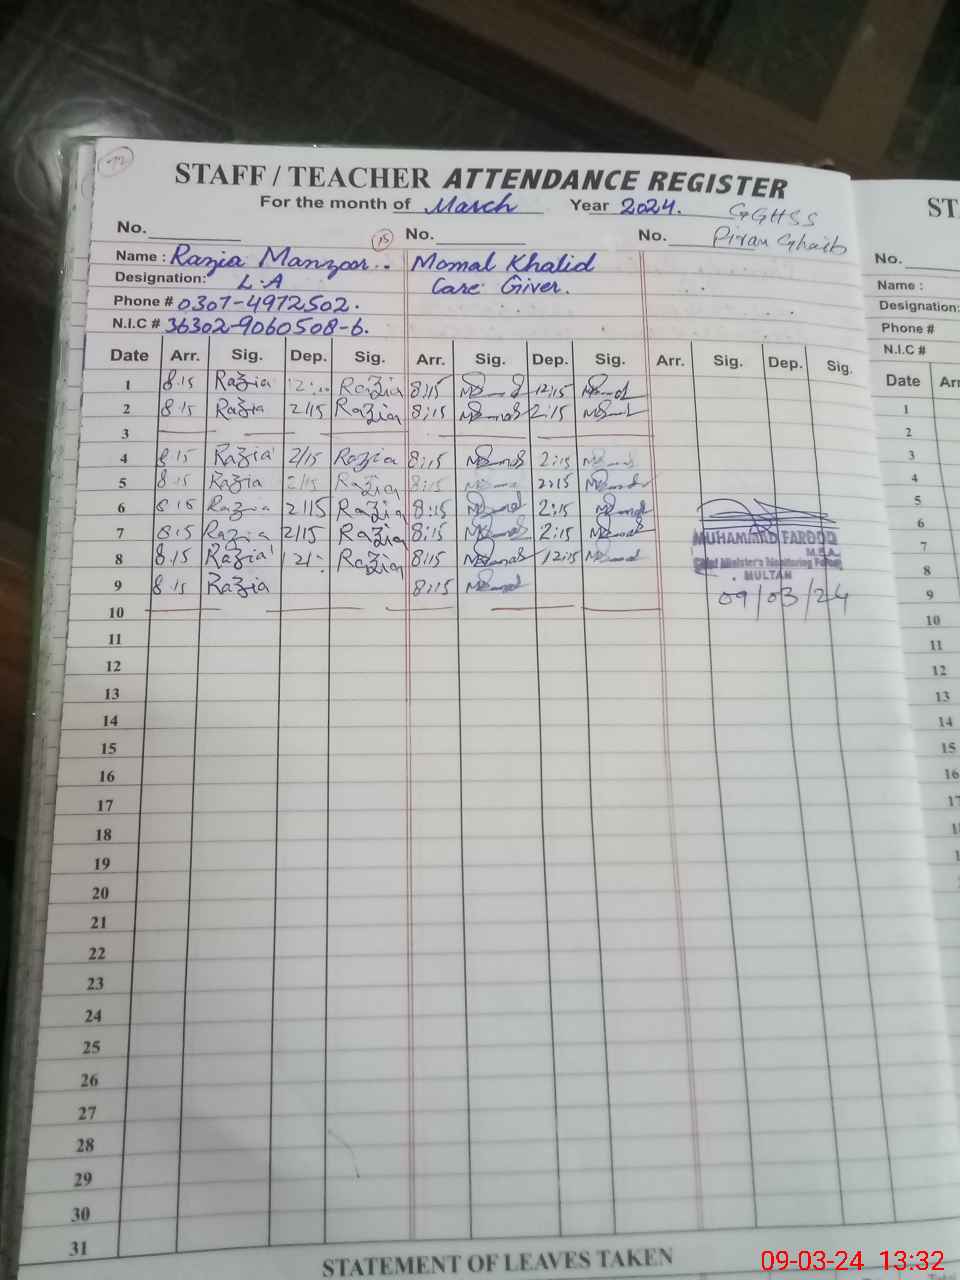 STAFF / TEACHER ATTENDANCE REGISTER
For the month of March Year 2024. GGHSS
No. 15 No. No. Piran Ghaib
Name : Razia Manzoor.. Momal Khalid
Designation: L.A Care Giver.
Phone # 0307-4972502.
N.I.C # 36302-9060508-6.
Date Arr. Sig. Dep. Sig. Arr. Sig. Dep. Sig. Arr. Sig. Dep. Sig.
1 8.15 Razia 12: Razia 8:15 Momal 12:15 Momal
2 8.15 Razia 2/15 Razia 8:15 Momal 2:15 Momal
3
4 8.15 Razia 2/15 Razia 8:15 Momal 2:15 Momal
5 8.15 Razia 2/15 Razia 8:15 Momal 2:15 Momal
6 8.15 Razia 2/15 Razia 8:15 Momal 2:15 Momal
7 8.15 Razia 2/15 Razia 8:15 Momal 2:15 Momal
8 8.15 Razia 12: Razia 8:15 Momal 12:15 Momal
9 8.15 Razia 8:15 Momal
10
MUHAMMAD FAROOQ
M.E.A.
Chief Minister's Monitoring Force
MULTAN
09/03/24
11
12
13
14
15
16
17
18
19
20
21
22
23
24
25
26
27
28
29
30
31
STATEMENT OF LEAVES TAKEN
ST
No.
Name :
Designation:
Phone #
N.I.C #
Date Arr
1
2
3
4
5
6
7
8
9
10
11
12
13
14
15
16
17
18
09-03-24 13:32